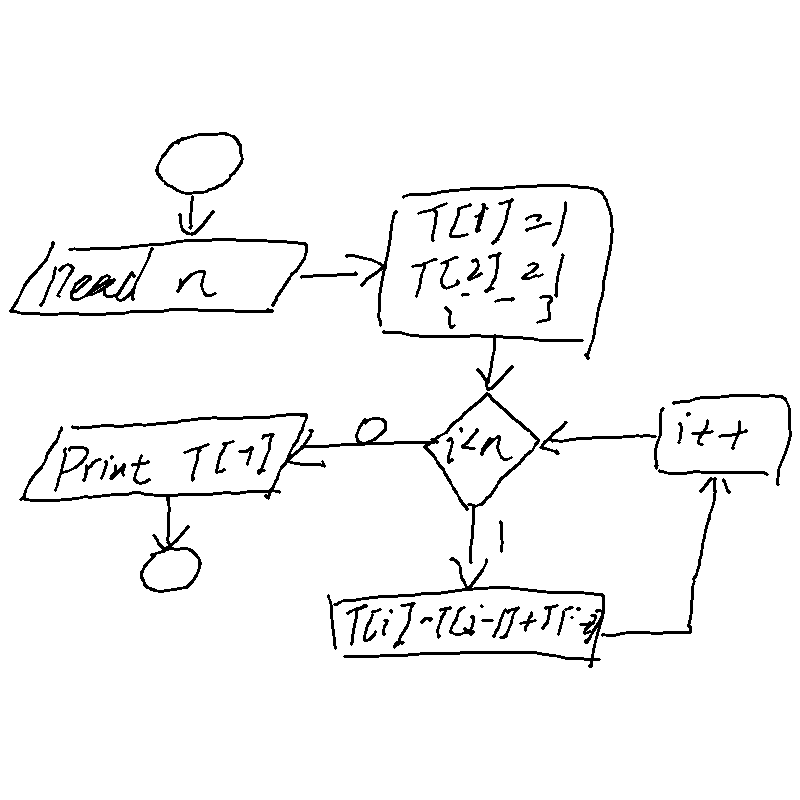 Read n
T[1]=1
T[2]=1
i=3
i<n
0
1
i++
Print T[1]
T[i]=T[i-1]+T[i-2]